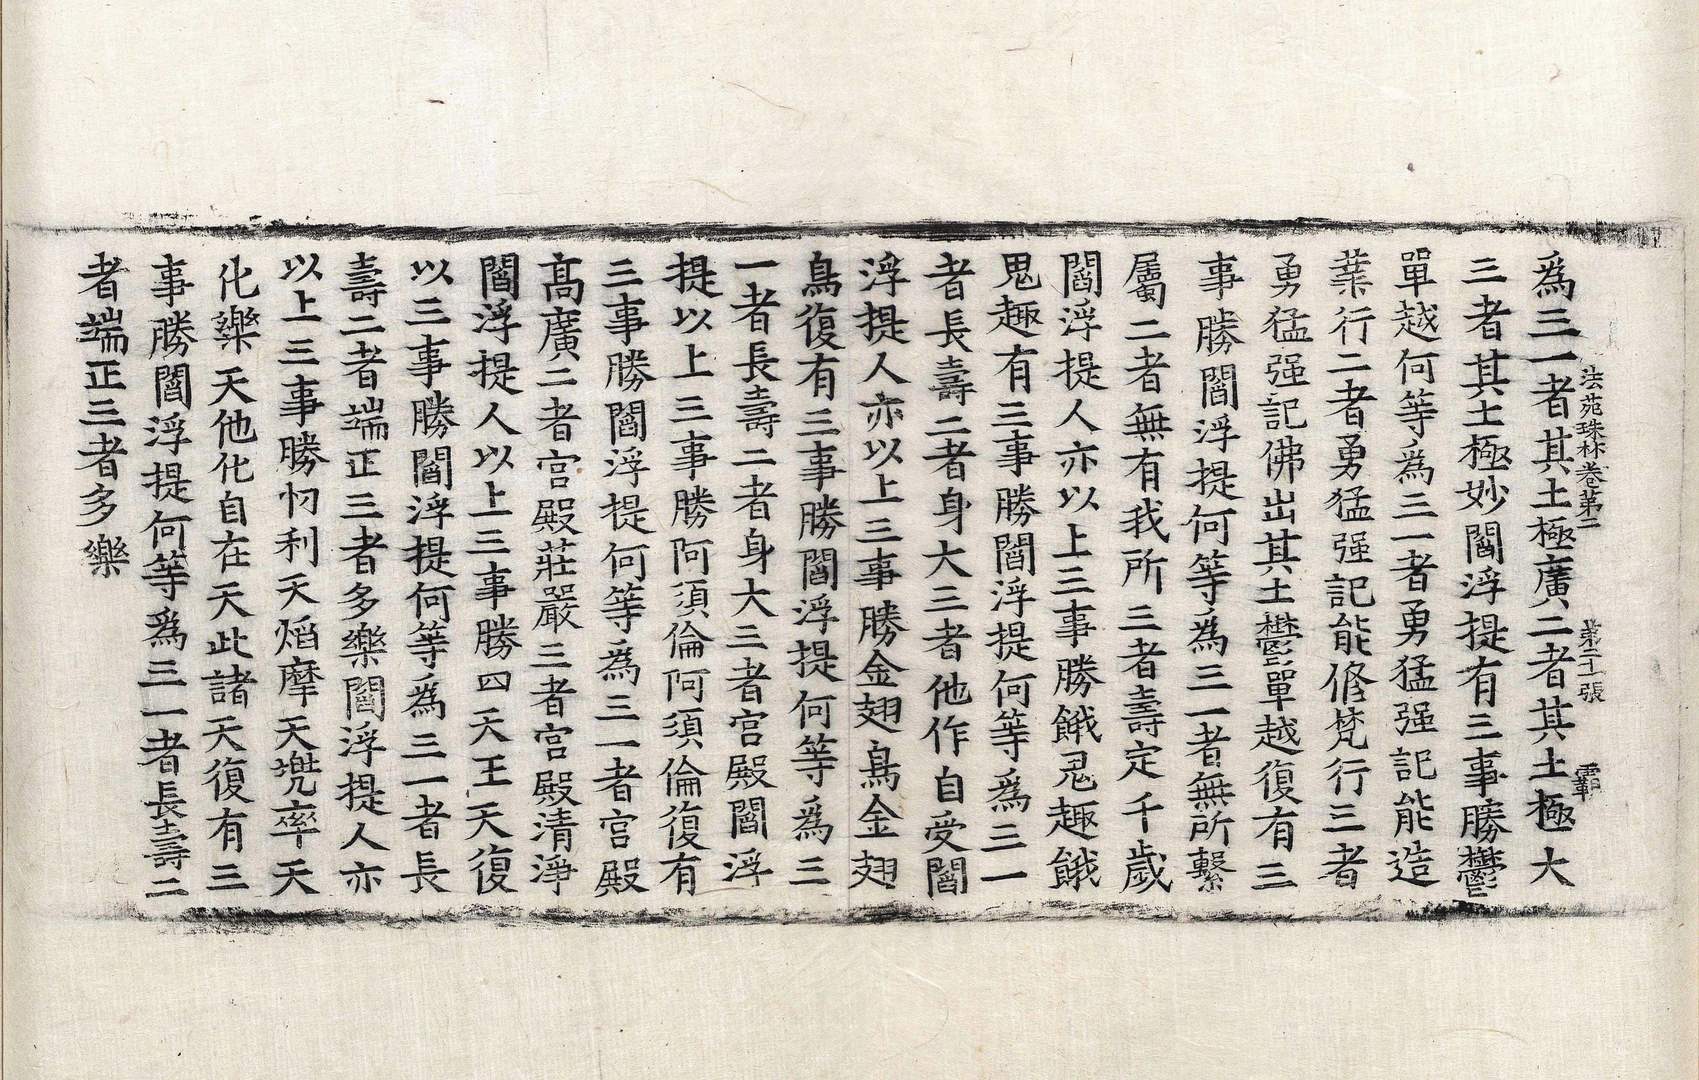 法苑珠林卷第二　第二十一張　覇
爲三一者其土極廣二者其土極大
三者其土極妙閻浮提有三事勝鬱
單越何等爲三一者勇猛强記能造
業行二者勇猛强記能修梵行三者
勇猛强記佛出其土鬱單越復有三
事勝閻浮提何等爲三一者無所繫
屬二者無有我所三者壽定千歲
閻浮提人亦以上三事勝餓鬼趣餓
鬼趣有三事勝閻浮提何等爲三一
者長壽二者身大三者他作自受閻
浮提人亦以上三事勝金翅鳥金翅
鳥復有三事勝閻浮提何等爲三
一者長壽二者身大三者宮殿閻浮
提以上三事勝阿須倫阿須倫復有
三事勝閻浮提何等爲三一者宮殿
高廣二者宮殿莊嚴三者宮殿清淨
閻浮提人以上三事勝四天王天復
以三事勝閻浮提何等爲三一者長
壽二者端正三者多樂閻浮提人亦
以上三事勝忉利天焰摩天兠率天
化樂天他化自在天此諸天復有三
事勝閻浮提何等爲三一者長壽二
者端正三者多樂